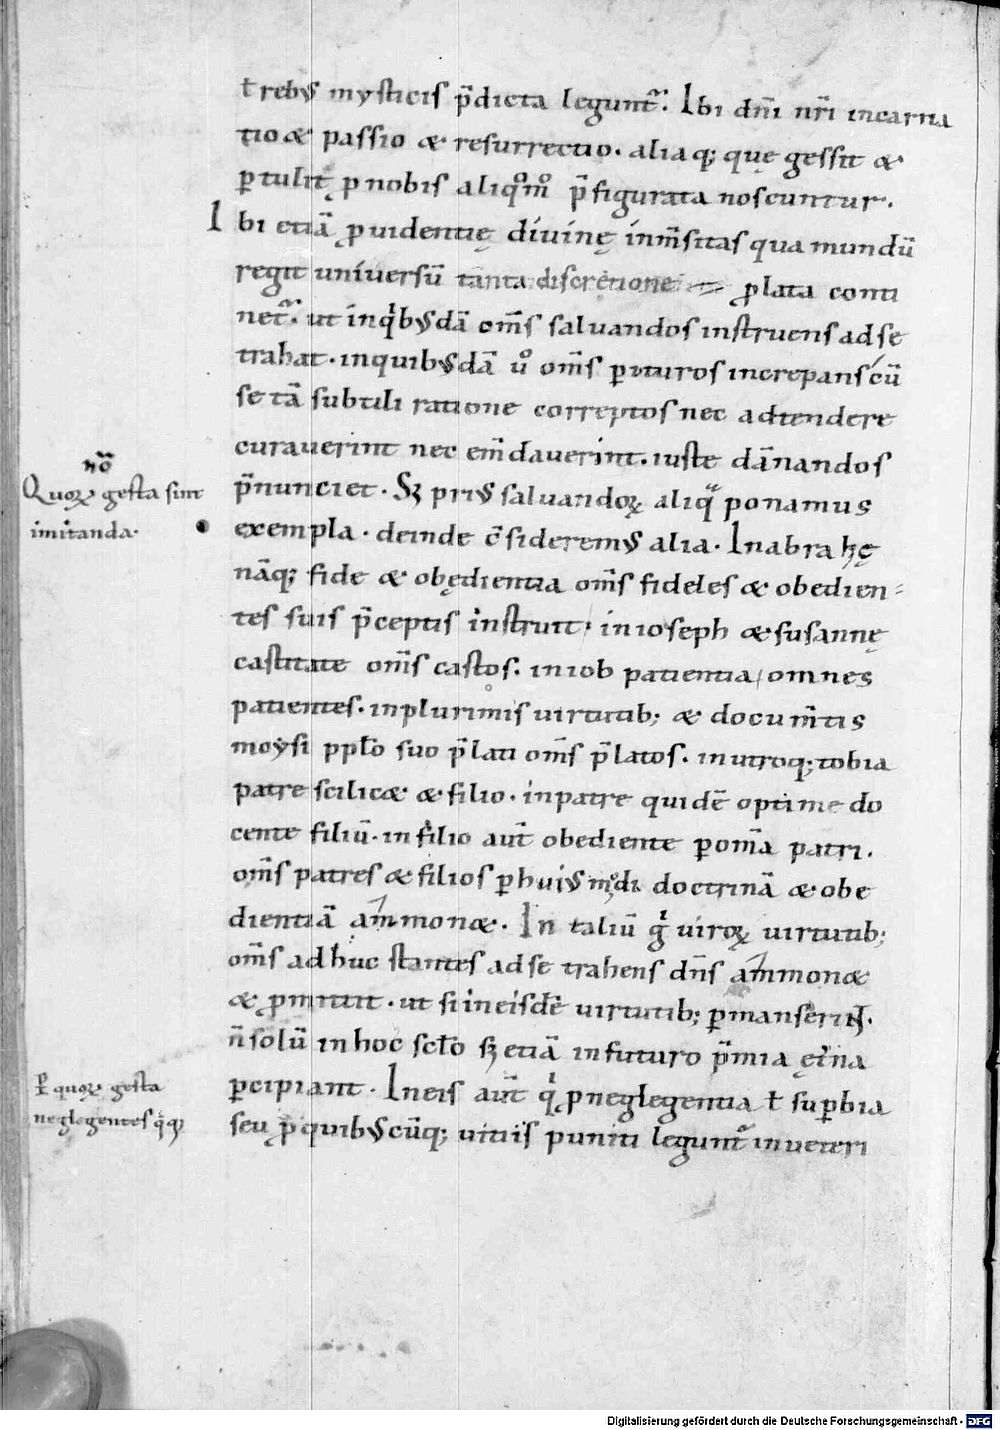 ł rebꝰ mysticis p̄dicta legunt᷑. Ibi dn̄i nr̄i incarna
tio & passio & resurrectio. aliaq; quę gessit &
ꝑtulit, ꝓ nobis aliqͦmͦ p̄figurata noscuntur.
Ibi etiā ꝓuidentię divinę inm̄sitas qua mundū
regit universū tanta discretione ꝓlata conti
net᷑. ut inqͥbꝰdā om̄s salvandos instruens ad se
trahat. inquibꝰdā ũ om̄s ꝑituros increpans cū
se tā subtili ratione correptos nec adtendere
curaverint nec em̄daverint. iuste dānandos
p̄nunciet. Sꝫ priꝰ salvandoꝝ aliq̄ ponamus
exempla. deinde c̄sideremꝰ alia. Inabrahę
nāq; fide & obędientia om̄s fideles & obedien-
tes suis p̄ceptis instruit. inioseph & susannę
castitate om̄s castos. iniob patientia omnes
patientes. inplurimis virtutib; & docum̄tis
moysi pplo suo p̄lati om̄s p̄latos. inutroq; tobia
patre scilic& & filio. inpatre quidē optime do
cente filiū. infilio aut̄ obediente ꝑ omīa patri.
om̄s patres & filios ꝑ huiꝰ mͦdi doctrinā & obe
dientiā ammon&. In taliū gͥ viroꝝ virtutib;
om̄s adhuc stantes ad se trahens dn̄s ammon&
& ꝓmittit. ut si ineisdē virtutib; ꝑmanserint.
n̄ solū inhoc sclo sꝫ etiā infuturo p̄mia ęt̄na
ꝑcipiant. Ineis aut̄ qͥ ꝓ neglegentia ł suꝑbia
seu ꝓ quibꝰcūq; vitiis puniti legunt᷑ inveteri
nō
Quoꝝ gesta sint
imitanda.
ꝑ quoꝝ gesta
neglegentes